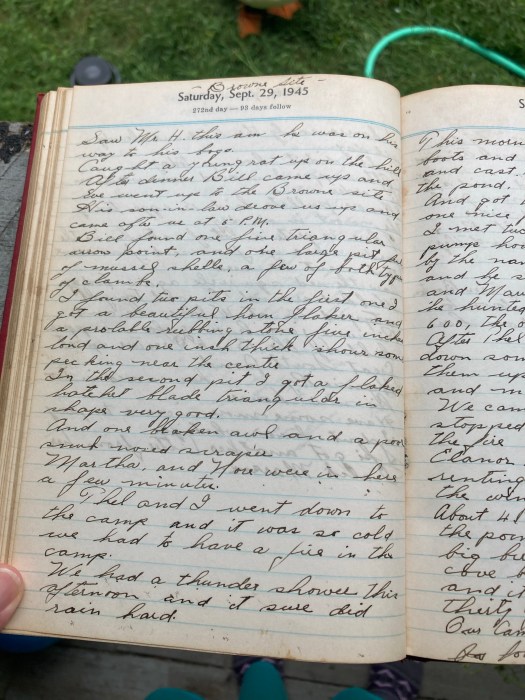 - Browne Site -
Saturday, Sept. 29, 1945
272nd day — 93 days follow
Saw Mr H. this am he was on his
way to his
Caught a young rat up on the hill
After dinner Bill came up and
we went up to the Browne site
His son in law drove us up and
came after us at 5 P.M.
Bill found one fine triangular
arrow point, and one large pit full
of mussel shells, a few of both type
of clams.
I found two pits in the first one I
got a beautiful horn flaker and
a probable rubbing stone five inches
long and one inch thick shows some
pecking near the center
In the second pit I got a flaked
hatchet blade triangular in
shape very good.
And one broken awl and a poor
snub nosed scraper
Martha, and were in here
a few minutes.
Thel and I went down to
the camp and it was so cold
we had to have a fire in the
camp.
We had a thunder shower this
afternoon and it sure did
rain hard.
S
This morn
boots and
and cast
the pond.
And got
one nice
I met two
pumps ho
by the na
and he s
and Mau
he hunted
600, the
After Thel
down som
them up
and m
We can
stopped
the fire
Elanor
renting
the wa
About 41
the poin
big bu
cove b
and it
thirty
Our Cam